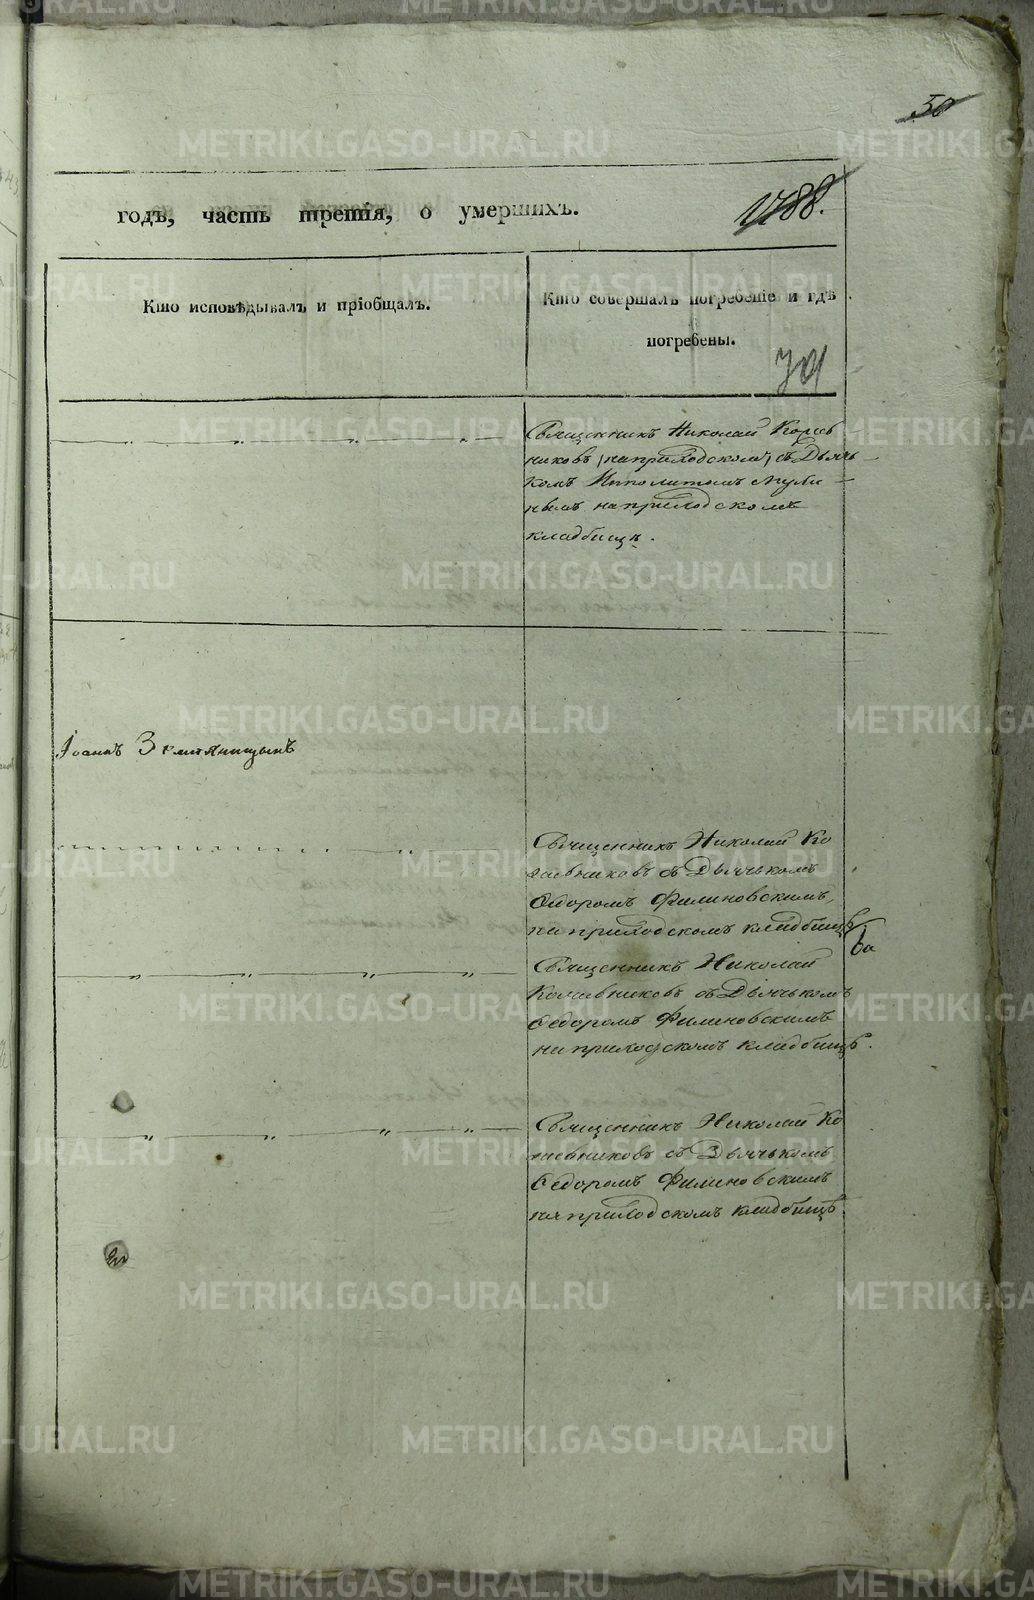 50
годъ, часть третія, о умершихъ.
1788.
Кто исповѣдывалъ и пріобщалъ.
Кто совершалъ погребеніе и гдѣ
погребены.
701
Священникъ Николай
никовъ, съ Дьячь
комъ Ипполитомъ
нымъ на приходскомъ
кладбищѣ.
Іоаннъ Земляницынъ
Священникъ Николай Ко
чевниковъ съ Дьячькомъ
Ѳедоромъ Филиновскимъ,
на приходскомъ кладбищѣ
Священникъ Николай
Кочевниковъ съ Дьячькомъ
Ѳедоромъ Филиновскимъ
на приходскомъ кладбищѣ.
Священникъ Николай Ко
чевниковъ съ Дьячькомъ
Ѳедоромъ Филиновскимъ
на приходскомъ кладбищѣ.
METRIKI.GASO-URAL.RU